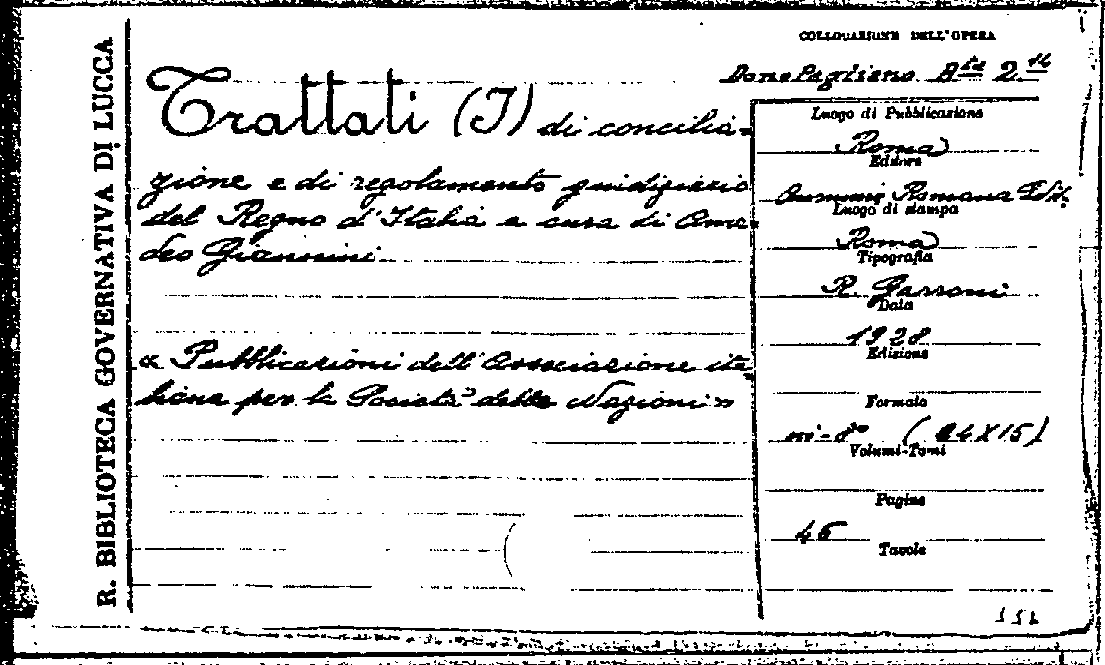 R. BIBLIOTECA GOVERNATIVA DI LUCCA
Trattati (I) di concilia-
zione e di regolamento giudiziario
del Regno d'Italia a cura di Ame-
deo Giannini
« Pubblicazioni dell'Associazione ita-
liana per la Società delle Nazioni »
COLLOCAZIONE DELL'OPERA
Dono Pagliano Bta 2
Luogo di Pubblicazione
Roma
Editore
Romana Edit.
Luogo di stampa
Roma
Tipografia
R. Garroni
Data
1928
Edizione
Formato
in-8° (24X15)
Volumi-Tomi
Pagine
46
Tavole